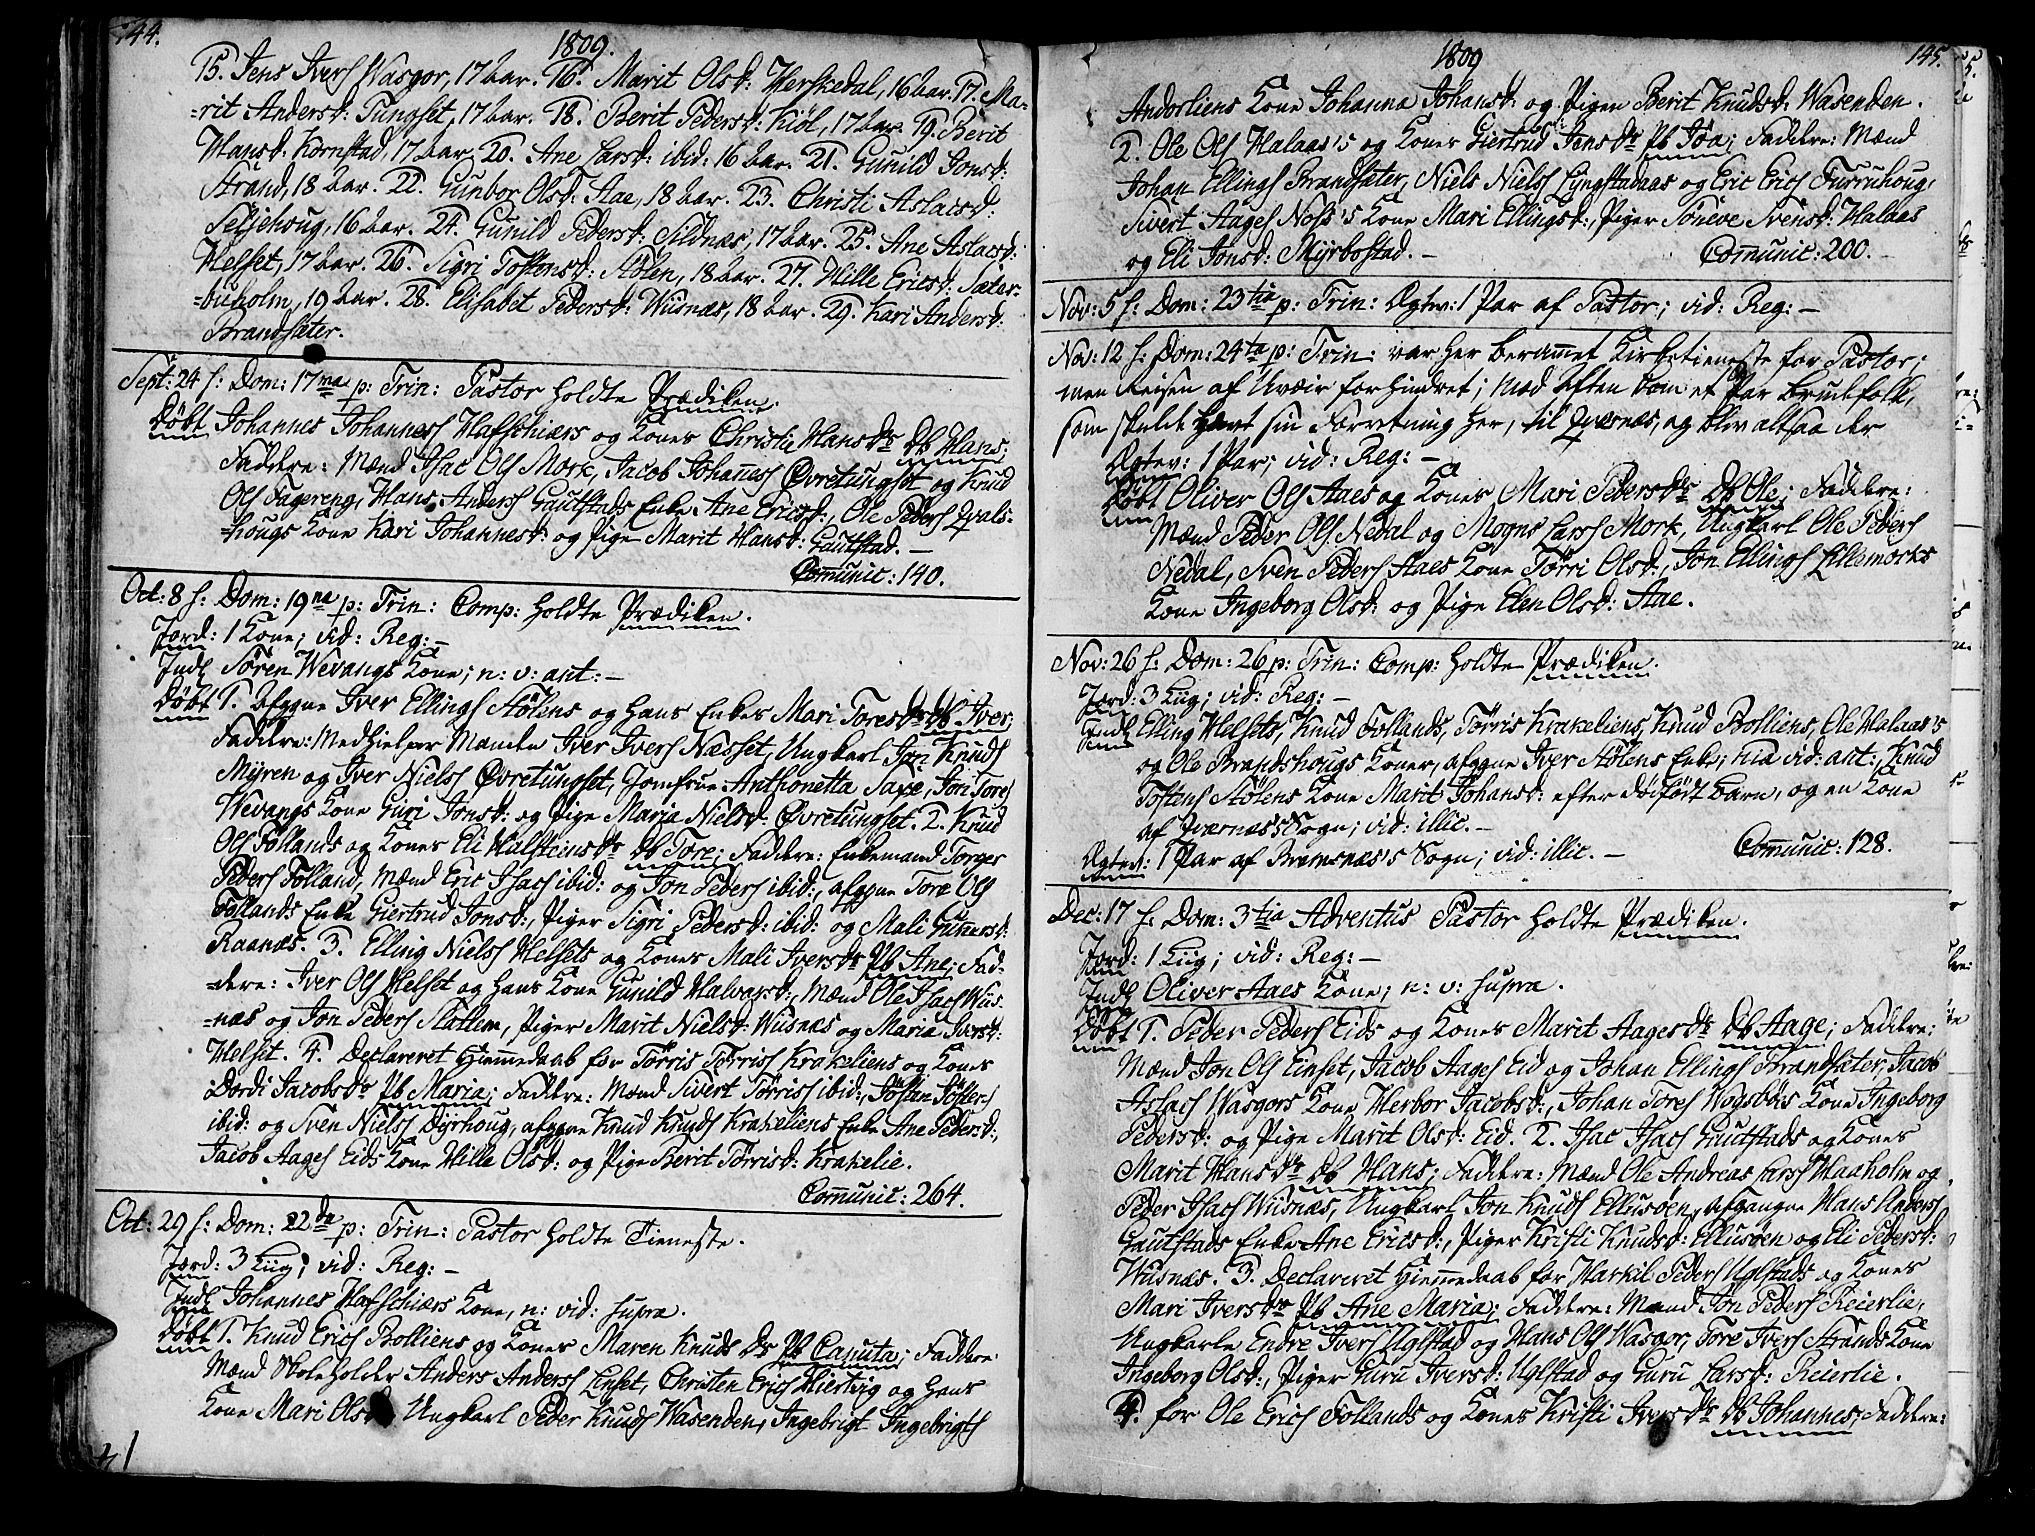 144.
1809.
15. Jens Ivers Wasgor, 17 aar. 16. Marit Olsd: Herskedal, 16 aar. 17. Ma-
=rit Andersd: Tungset, 17 aar. 18. Berit Pedersd: Kiøl, 17 aar. 19. Berit
Hansd: Kornstad, 17 aar. 20. Ane Larsd: ibid: 16 aar. 21. Gunild Jonsd:
Strand, 18 aar. 22. Gunbor Olsd: Aae, 18 aar. 23. Christi Aslacsd:
Seljehoug, 16 aar. 24. Gunild Pedersd: Sildnæs, 17 aar. 25. Ane Aslacsd:
Helset, 17 aar. 26. Sigri Tostensd: Stølen, 18 aar. 27. Hille Ericsd: Sæter-
=buholm, 19 aar. 28. Elisabet Pedersd: Wiisnæs, 18 aar. 29. Kari Andersd:
Brandsæter.
Sept: 24 f: Dom: 17ma p: Trin: Pastor holdte Prædiken.
Døbt Johannes Johanness Hafschiærs og Kones Christi Hans Dr Db Hans;
Faddere: Mænd Isac Ols Mork, Jacob Johanness Øvretungset og Knud
Ols Fagereng, Hans Anders Gautstads Enke Ane Ericsd:, Ole Peders Qvals-
=hougs Kone Kari Johannesd: og Pige Marit Hansd: Gautstad. -
Communic: 140.
Oct: 8 f: Dom: 19na p: Trin: Comp: holdte Prædiken.
Jord: 1 Kone; vid: Reg: -
Indl Søren Wevangs Kone; n: v: ant: -
Døbt 1. Afgagne Iver Ellings Stølens og hans Enkes Mari Tores Dr Db Iver;
Faddere: Medhielper Mænd Iver Ivers Næsset, Ungkarl Jon Knuds
Myren og Iver Niels Øvretungset, Jomfrue Anthonetta Saxe, Jon Tores
Wevangs Kone Guri Jonsd: og Pige Maria Nielsd: Øvretungset. 2. Knud
Ols Follands og Kones Eli Halsteins Dr Db Tore; Faddere: Enkemand Torger
Peders Folland, Mænd Eric Isacs ibid: og Jon Peders ibid:, afgagne Tore Ols
Follands Enke Giertrud Jonsd:, Piger Sigri Pedersd: ibid: og Mali Gunnersd:
Raanæs. 3. Elling Niels Helsets og Kones Mali Ivers Dr Pb Ane; Fad-
=dere: Iver Ols Helset og hans Kone Gunild Halvorsd:, Mænd Ole Isacs Wiis-
=næs og Jon Peders Slattem, Piger Marit Nielsd: Wiisnæs og Maria Ivarsd:
Helset. 4. Declareret Hiemmedaab for Tørris Tørriss Krakeliens og Kones
Dordi Jacobs Dr Pb Maria; Faddere: Mænd Sivert Tørriss ibid:, Jøstan Jøstens
ibid: og Sven Niels Dyrhoug, afgagne Knud Knuds Krakeliens Enke Ane Pedersd:,
Jacob Aages Eids Kone Hille Olsd: og Pige Berit Tørrisd: Krakelie.
Communic: 264.
Oct: 29 f: Dom: 22da p: Trin: Pastor holdte Tieneste.
Jord: 3 Liig; vid: Reg: -
Indl Johannes Hafschiærs Kone, n: vid: supra.
Døbt 1. Knud Erics Bolliens og Kones Maren Knuds Dr Pb Canuta; Faddere:
Mænd Skoleholder Anders Anders Einset, Christen Erics Hiertvig og hans
Kone Mari Olsd: Ungkarl Peder Knuds Wasenden, Ingebrigt Ingebrigts
1809
145.
Andorliens Kone Johanna Johansd: og Pigen Berit Knudsd: Wasenden.
2. Ole Ols Halaas's og Kones Giertrud Jens Dr Pb Ida; Faddere: Mænd
Johan Ellings Brandsæter, Niels Niels Lyngstadaas og Eric Erics Furruhoug,
Sivert Aages Nass's Kone Mari Ellingsd:, Piger Søneve Svensd: Halaas
og Eli Jonsd: Myrbostad. -
Communic: 200. -
Nov: 5 f: Dom: 23tia p: Trin: Ægtev: 1 Par af Pastor; vid: Reg: -
Nov: 12 f: Dom: 24ta p: Trin: var her berammet Kirketieneste for Pastor;
men Reisen af Uveir forhindret; mod Aften kom et Par Brudefolk,
som skulde havt sin Forretning her, til Qværnæs, og blev altsaa der
Ægtev: 1 Par; vid: Reg: -
Døbt Oliver Ols Aaes og Kones Mari Peders Dr Db Ole; Faddere:
Mænd Peder Ols Nedal og Mogns Lars Mork, Ungkarl Ole Peders
Nedal, Sven Peders Aaes Kone Tørri Olsd:, Jon Ellings Lillemorks
Kone Ingeborg Olsd: og Pige Elen Olsd: Aae.
Nov: 26 f: Dom: 26 p: Trin: Comp: holdte Prædiken.
Jord: 3 Liig; vid: Reg: -
Indl Elling Helsets, Knud Follands, Tørris Krakeliens, Knud Bolliens, Ole Halaas's
og Ole Brandshougs Koner, afgagne Iver Stølens Enke; hic vid: ant:, Knud
Tostens Stølens Kone Marit Johansd: efter dødfødt Barn, og en Kone
af Qværnæs's Sogn; vid: illic. -
Ægtev: 1 Par af Bremsnæs's Sogn; vid: illic. -
Communic: 128.
Dec: 17 f: Dom: 3tia Adventus Pastor holdte Prædiken.
Jord: 1 Liig; vid: Reg: -
Indl Oliver Aaes Kone; n: v: supra.
Døbt 1. Peder Peders Eids og Kones Marit Aages Dr Db Aage; Faddere:
Mænd Jon Ols Einset, Jacob Aages Eid og Johan Ellings Brandsæter, Jacob
Aslacs Wasgors Kone Herbor Jacobsd:, Johan Tores Wogsbøes Kone Ingeborg
Pedersd: og Pige Marit Olsd: Eid. 2. Isac Isacs Gautstads og Kones
Marit Hans Dr Db Hans; Faddere: Mænd Ole Andreas Lars Haaholm og
Peder Isacs Wiisnæs, Ungkarl Jon Knuds Ellusøen, afgangne Hans Anders
Gautstads Enke Ane Ericsd:, Piger Kristi Knudsd: Ellusøen og Eli Pedersd:
Wiisnæs. 3. Declareret Hiemmedaab for Harkil Peders Uglstads og Kones
Mari Ivers Dr Pb Ane Maria; Faddere: Mænd Jon Peders Reierlie,
Ungkarle Endre Ivers Uglstad og Hans Ols Wasgor, Tore Ivers Strands Kone
Ingeborg Olsd:, Piger Guru Iversd: Uglstad og Guru Larsd: Reierlie.
4. for Ole Erics Follands og Kones Kristi Ivers Dr Db Johannes; Faddere: